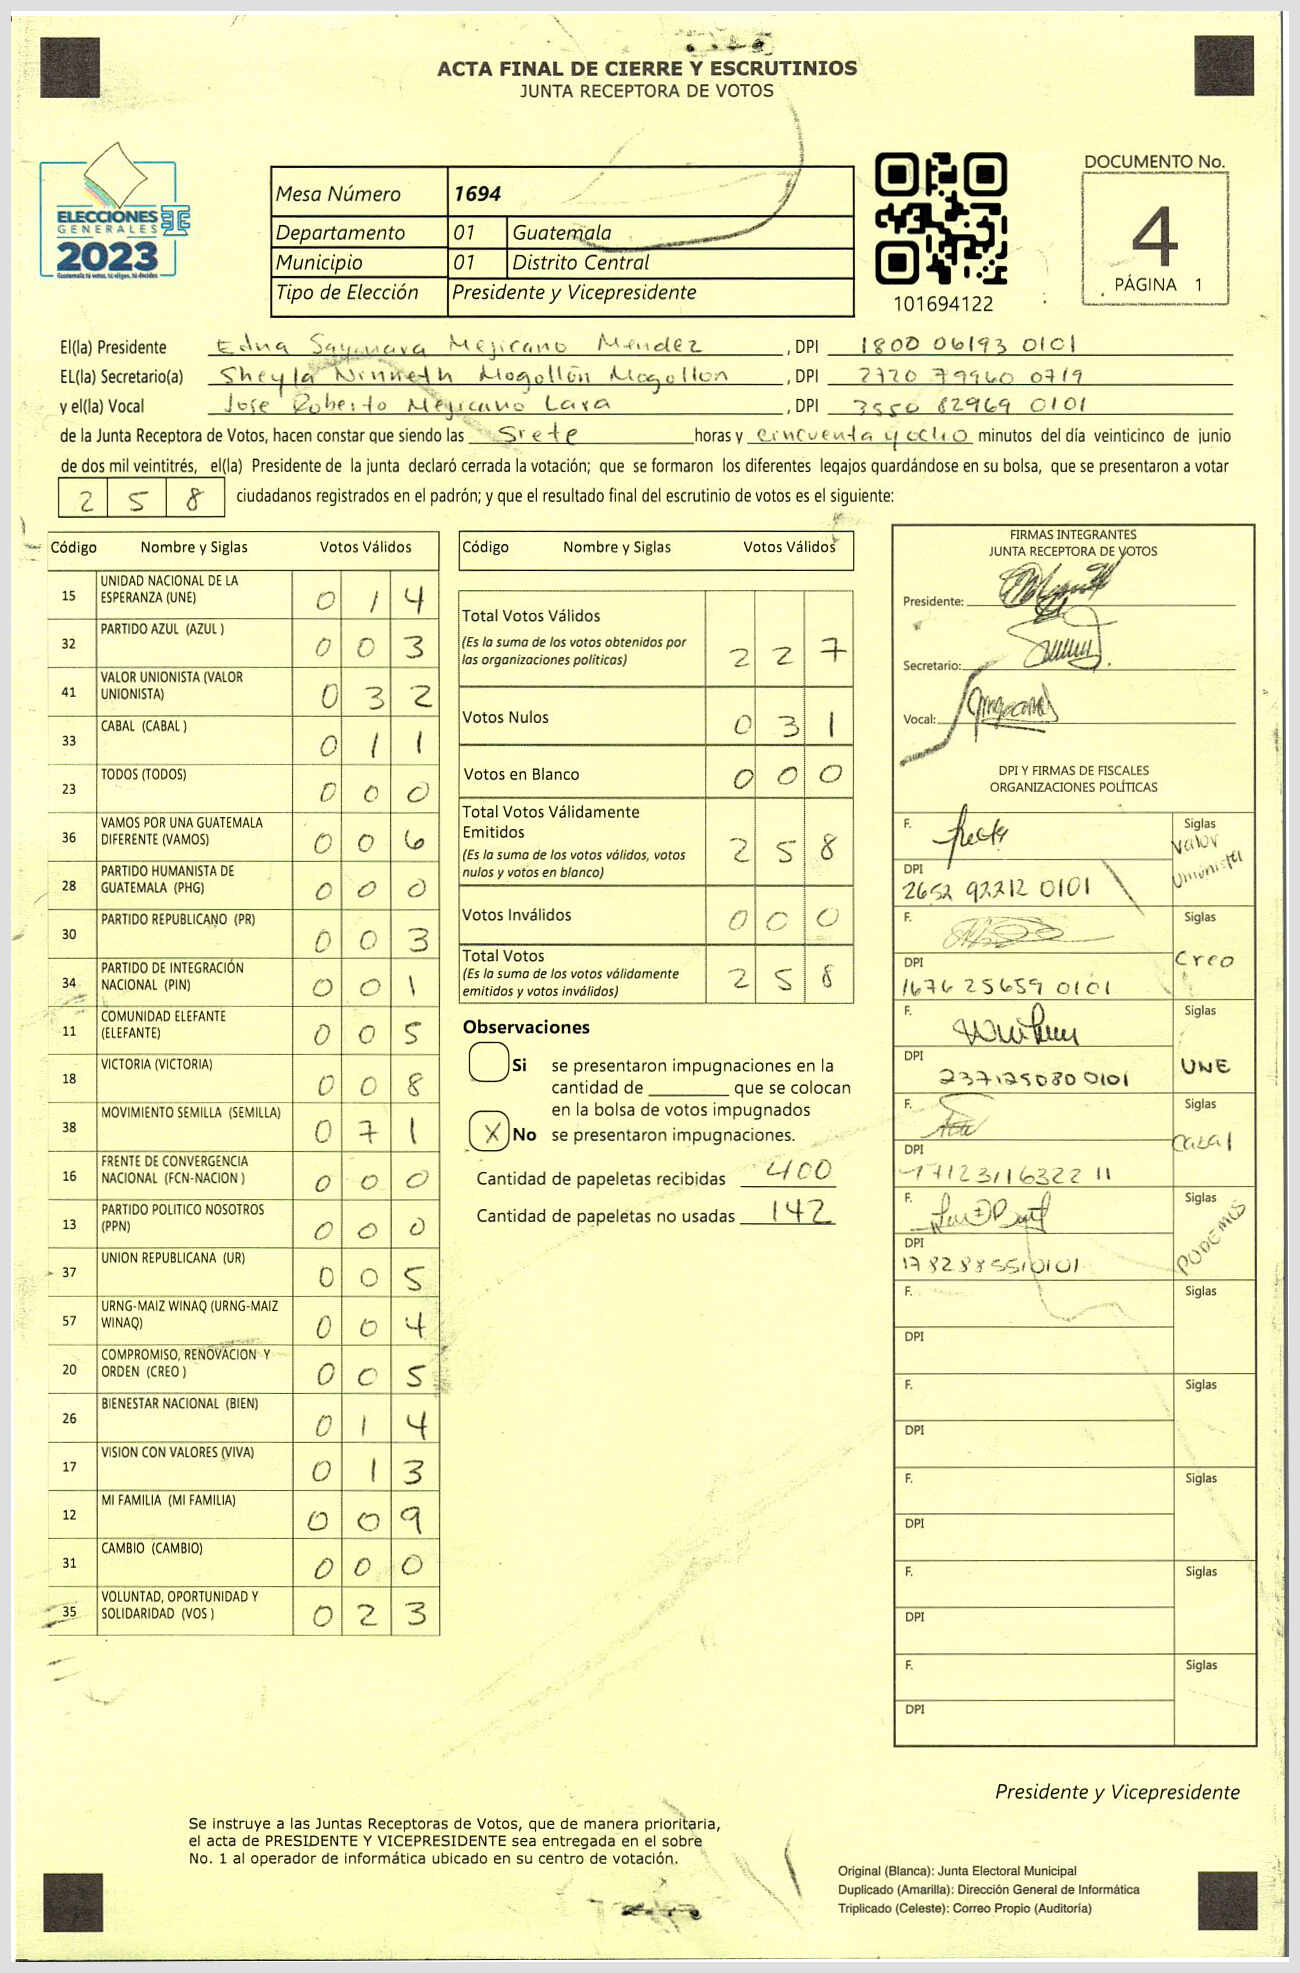 ACTA FINAL DE CIERRE Y ESCRUTINIOS
JUNTA RECEPTORA DE VOTOS
ELECCIONES
GENERALES
2023
Guatemala tú votas, tú eliges, tú decides
Mesa Número 1694
Departamento 01 Guatemala
Municipio 01 Distrito Central
Tipo de Elección Presidente y Vicepresidente
101694122
DOCUMENTO No.
4
PÁGINA 1
El(la) Presidente Edna Sayonara Mejicano Mendez, DPI 1800 06193 0101
EL(la) Secretario(a) Sheyla Ninneth Mogollón Mogollon, DPI 2720 79960 0719
y el(la) Vocal Jose Roberto Mejicano Lara, DPI 3550 82969 0101
de la Junta Receptora de Votos, hacen constar que siendo las Siete horas y cincuenta y ocho minutos del día veinticinco de junio
de dos mil veintitrés, el(la) Presidente de la junta declaró cerrada la votación; que se formaron los diferentes legajos guardándose en su bolsa, que se presentaron a votar
2 5 8 ciudadanos registrados en el padrón; y que el resultado final del escrutinio de votos es el siguiente:
Código Nombre y Siglas Votos Válidos
15 UNIDAD NACIONAL DE LA ESPERANZA (UNE) 0 1 4
32 PARTIDO AZUL (AZUL ) 0 0 3
41 VALOR UNIONISTA (VALOR UNIONISTA) 0 3 2
33 CABAL (CABAL ) 0 1 1
23 TODOS (TODOS) 0 0 0
36 VAMOS POR UNA GUATEMALA DIFERENTE (VAMOS) 0 0 6
28 PARTIDO HUMANISTA DE GUATEMALA (PHG) 0 0 0
30 PARTIDO REPUBLICANO (PR) 0 0 3
34 PARTIDO DE INTEGRACIÓN NACIONAL (PIN) 0 0 1
11 COMUNIDAD ELEFANTE (ELEFANTE) 0 0 5
18 VICTORIA (VICTORIA) 0 0 8
38 MOVIMIENTO SEMILLA (SEMILLA) 0 7 1
16 FRENTE DE CONVERGENCIA NACIONAL (FCN-NACION ) 0 0 0
13 PARTIDO POLITICO NOSOTROS (PPN) 0 0 0
37 UNION REPUBLICANA (UR) 0 0 5
57 URNG-MAIZ WINAQ (URNG-MAIZ WINAQ) 0 0 4
20 COMPROMISO, RENOVACION Y ORDEN (CREO ) 0 0 5
26 BIENESTAR NACIONAL (BIEN) 0 1 4
17 VISION CON VALORES (VIVA) 0 1 3
12 MI FAMILIA (MI FAMILIA) 0 0 9
31 CAMBIO (CAMBIO) 0 0 0
35 VOLUNTAD, OPORTUNIDAD Y SOLIDARIDAD (VOS ) 0 2 3
Código Nombre y Siglas Votos Válidos
Total Votos Válidos 2 2 7
(Es la suma de los votos obtenidos por
las organizaciones políticas)
Votos Nulos 0 3 1
Votos en Blanco 0 0 0
Total Votos Válidamente
Emitidos 2 5 8
(Es la suma de los votos válidos, votos
nulos y votos en blanco)
Votos Inválidos 0 0 0
Total Votos 2 5 8
(Es la suma de los votos válidamente
emitidos y votos inválidos)
Observaciones
Si se presentaron impugnaciones en la
cantidad de ________ que se colocan
en la bolsa de votos impugnados
X No se presentaron impugnaciones.
Cantidad de papeletas recibidas 400
Cantidad de papeletas no usadas 142
FIRMAS INTEGRANTES
JUNTA RECEPTORA DE VOTOS
Presidente:
Secretario:
Vocal:
DPI Y FIRMAS DE FISCALES
ORGANIZACIONES POLÍTICAS
F. Siglas Valor Unionista
DPI 2652 92212 0101
F. Siglas Creo
DPI 1676 25659 0101
F. Siglas UNE
DPI 2371250800101
F. Siglas Cabal
DPI
F. Siglas PODEMOS
DPI 1782885510101
F. Siglas
DPI
F. Siglas
DPI
F. Siglas
DPI
F. Siglas
DPI
F. Siglas
DPI
Presidente y Vicepresidente
Se instruye a las Juntas Receptoras de Votos, que de manera prioritaria,
el acta de PRESIDENTE Y VICEPRESIDENTE sea entregada en el sobre
No. 1 al operador de informática ubicado en su centro de votación.
Original (Blanca): Junta Electoral Municipal
Duplicado (Amarilla): Dirección General de Informática
Triplicado (Celeste): Correo Propio (Auditoría)